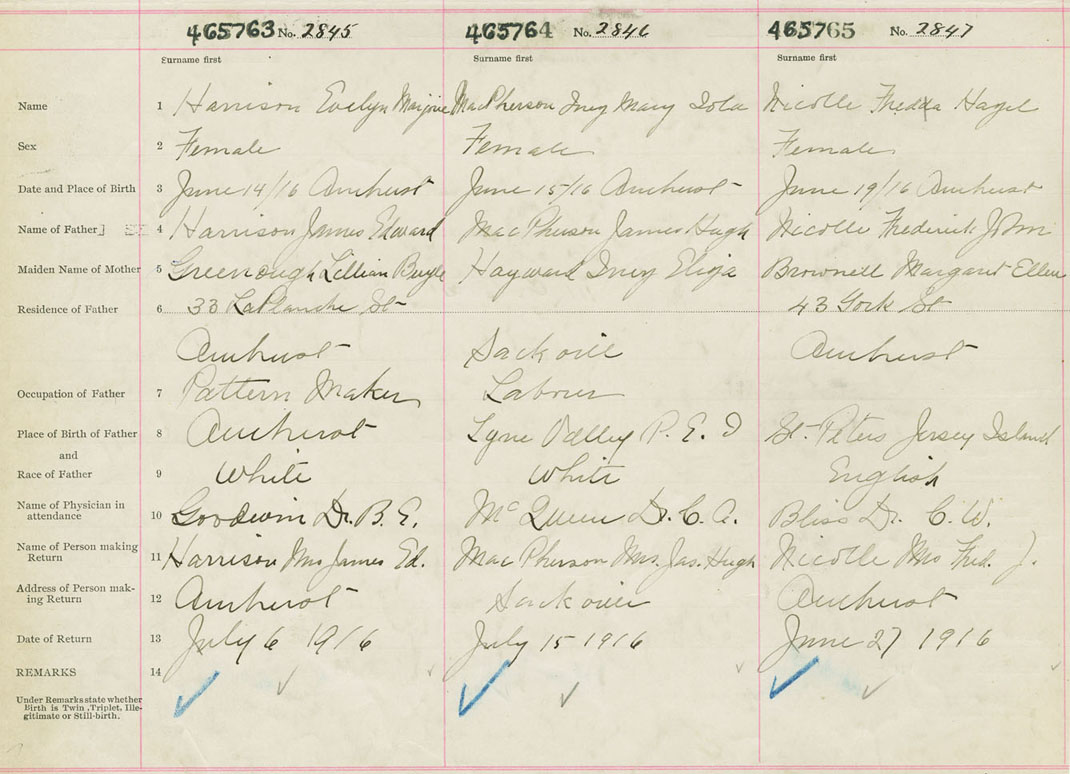 465763 No. 2845 465764 No. 2846 465765 No. 2847
Surname first Surname first Surname first
Name 1 Harrison Evelyn Marjorie MacPherson Iney Mary Iola Nicolle Fredda Hazel
Sex 2 Female Female Female
Date and Place of Birth 3 June 14/16 Amherst June 15/16 Amherst June 19/16 Amherst
Name of Father 4 Harrison James Edward MacPherson James Hugh Nicolle Frederick John
Maiden Name of Mother 5 Greenough Lillian Hayward Iney Eliza Brownell Margaret Ellen
Residence of Father 6 33 LaPlanche St 43 York St
Amherst Sackville Amherst
Occupation of Father 7 Pattern Maker Labourer
Place of Birth of Father 8 Amherst Lyne Valley P. E. I St. Peters Jersey Island
and
Race of Father 9 White White English
Name of Physician in
attendance 10 Goodwin Dr. B. E. McQueen Dr. C. A. Bliss Dr. C. W.
Name of Person making
Return 11 Harrison Mrs James Ed. MacPherson Mrs. Jas. Hugh Nicolle Mrs Fred. J.
Address of Person mak-
ing Return 12 Amherst Sackville Amherst
Date of Return 13 July 6 1916 July 15 1916 June 27 1916
REMARKS 14
Under Remarks state whether
Birth is Twin, Triplet, Ille-
gitimate or Still-birth.